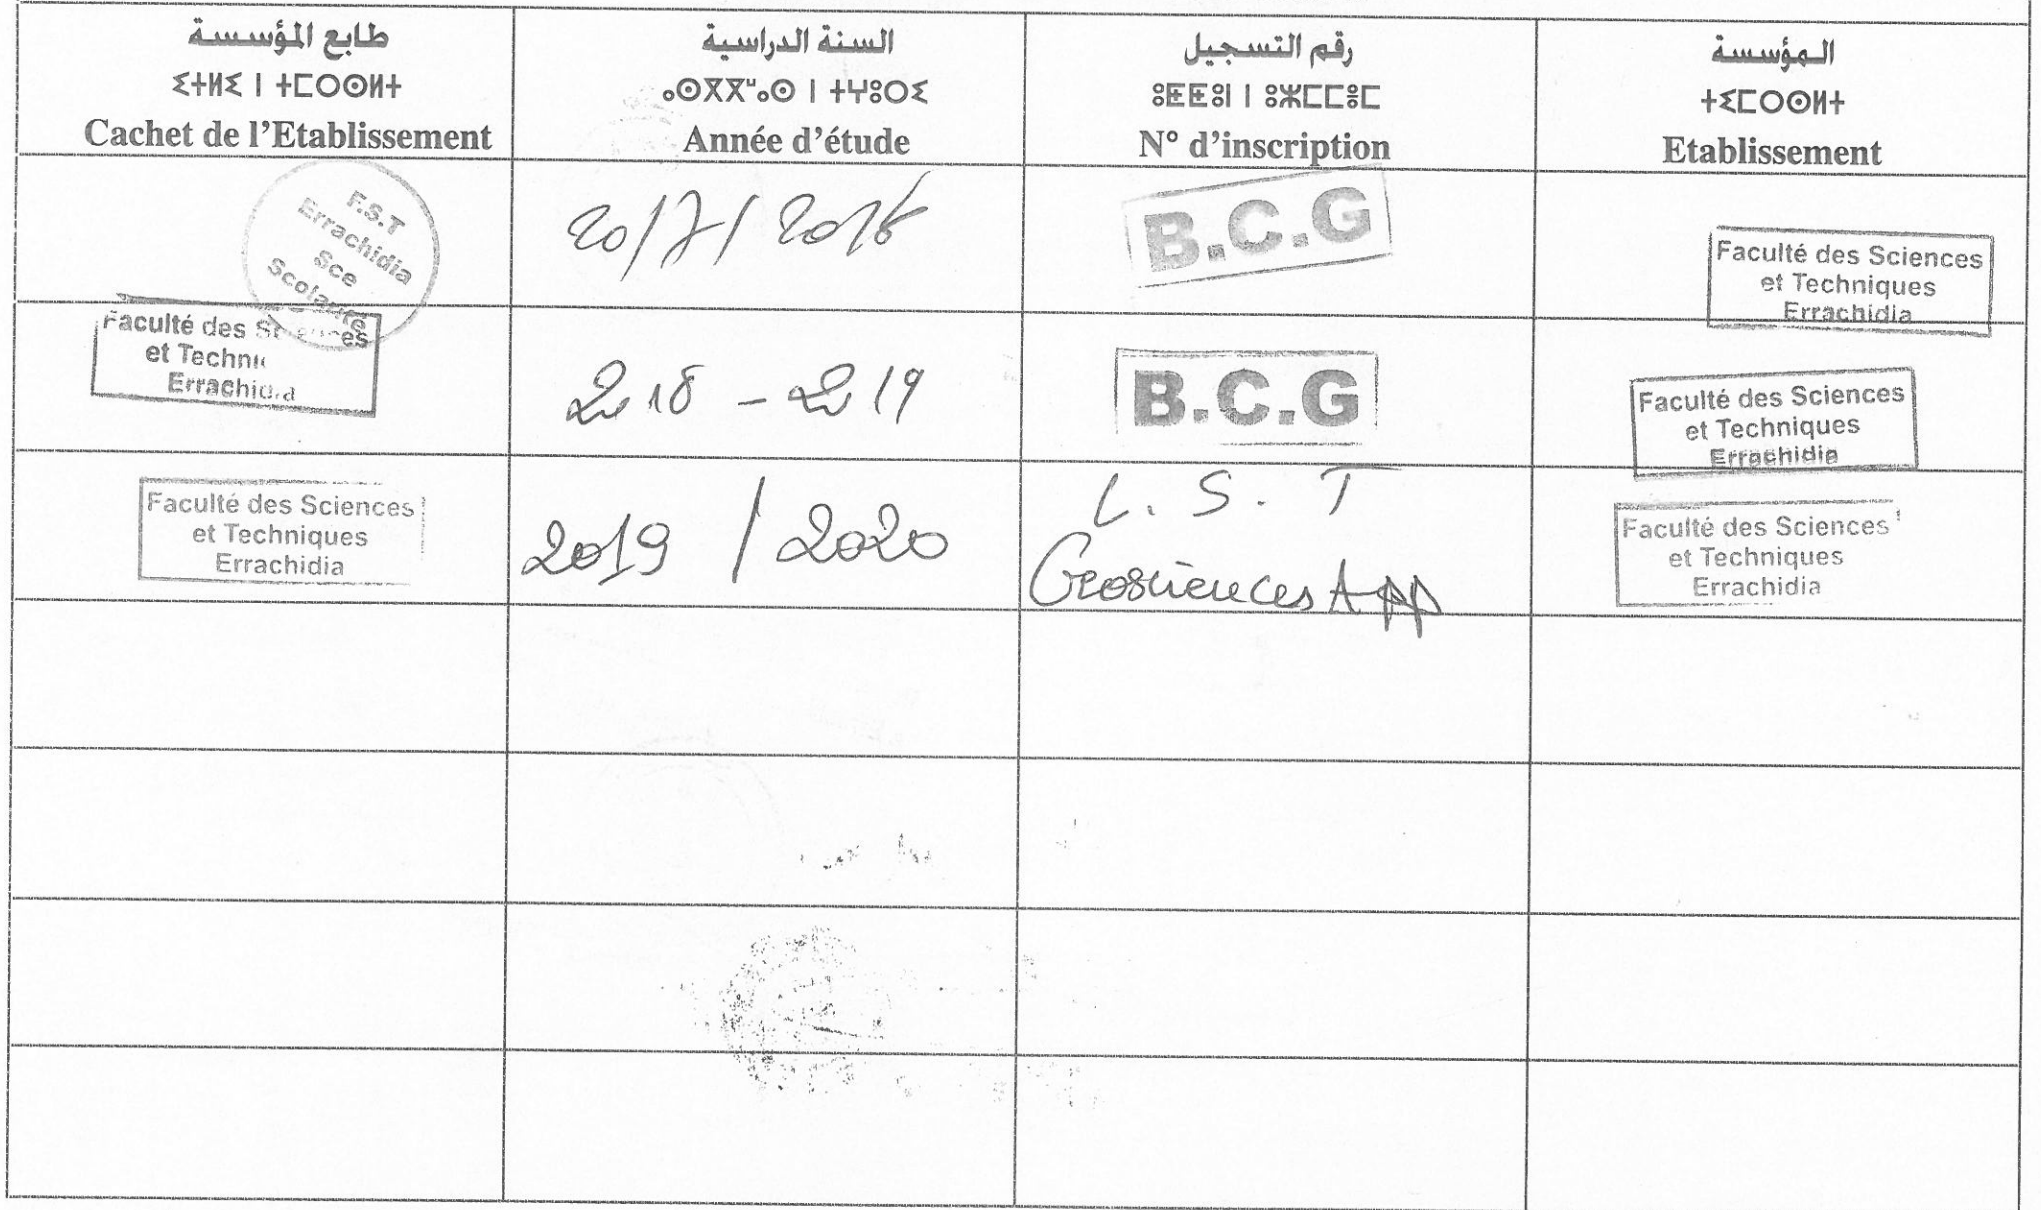 طابع المؤسسة
ⵉⵜⵍⵉ ⵏ ⵜⵎⵔⵙⵍⵜ
Cachet de l'Etablissement
السنة الدراسية
ⴰⵙⴳⴳⵯⴰⵙ ⵏ ⵜⵖⵓⵔⵉ
Année d'étude
رقم التسجيل
ⵓⵟⵟⵓⵏ ⵏ ⵓⵣⵎⵎⴻⵎ
N° d'inscription
المؤسسة
ⵜⵉⵎⵔⵙⵍⵜ
Etablissement
F.S.T
Errachidia
Sce
Scolarité
20/7/2018
B.C.G
Faculté des Sciences
et Techniques
Errachidia
Faculté des Sciences
et Techni
Errachidia
218 - 219
B.C.G
Faculté des Sciences
et Techniques
Errachidia
Faculté des Sciences
et Techniques
Errachidia
2019 / 2020
L. S. T
Geosciences App
Faculté des Sciences
et Techniques
Errachidia